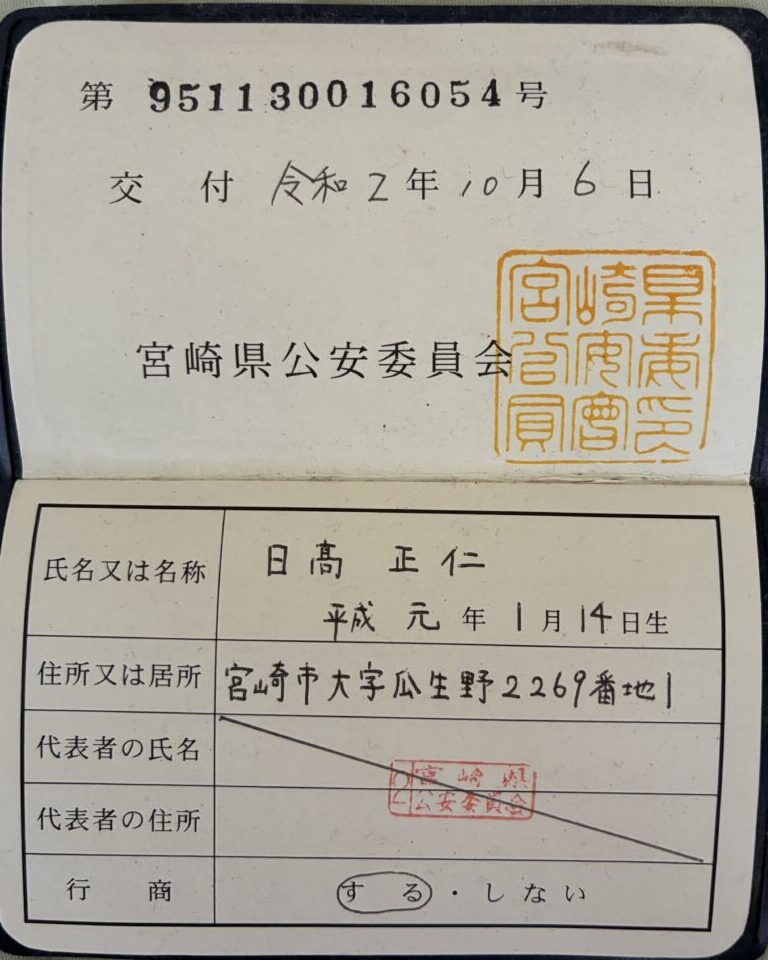 第 951130016054 号
交 付 令和 2 年 10 月 6 日
宮崎県公安委員会
宮崎県
公安委
員會印
氏名又は名称 日髙 正仁
平成 元 年 1 月 14 日生
住所又は居所 宮崎市大字瓜生野2269番地1
代表者の氏名
代表者の住所
宮崎県
公安委員会
行 商 する・しない